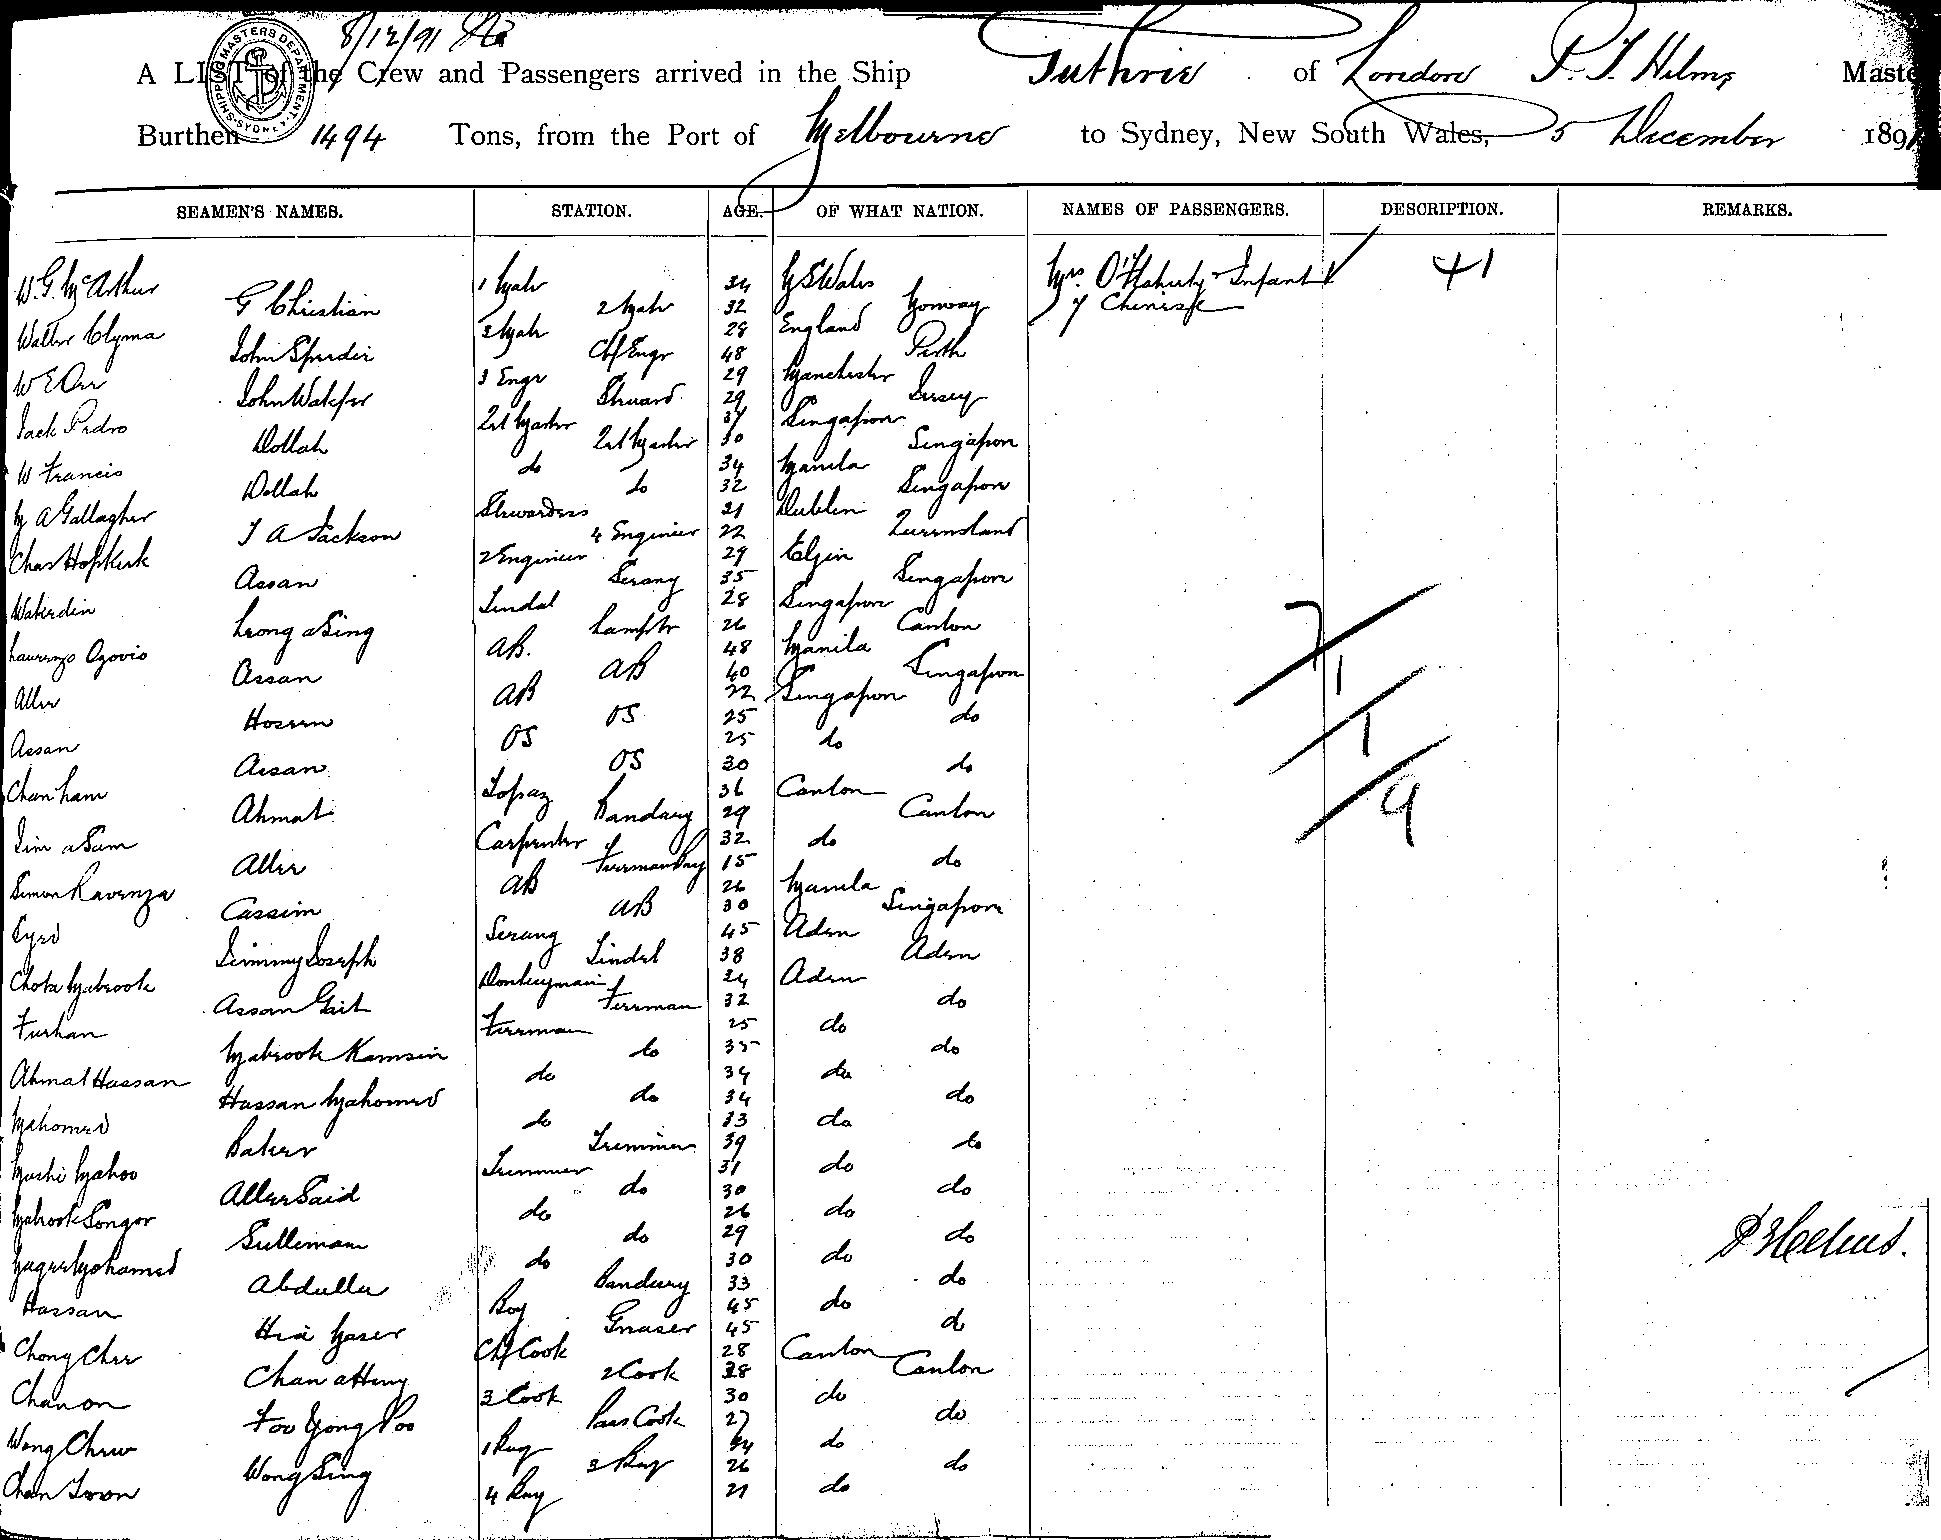 8/12/91
SHIPPING MASTERS DEPARTMENT. SYDNEY
A LIST of the Crew and Passengers arrived in the Ship Guthrie of London P. T. Helms Maste
Burthen 1494 Tons, from the Port of Melbourne to Sydney, New South Wales, 5 December 1891
SEAMEN'S NAMES. STATION. AGE. OF WHAT NATION. NAMES OF PASSENGERS. DESCRIPTION. REMARKS.
W. G. McArthur 1 Mate 34 N S Wales Mrs. O'Flaherty & Infant + 1
G Christian 2 Mate 32 Norway 7 Chinese
Walter Clyma 3 Mate 28 England
John Speedie Chf Engr 48 Perth
W E Orr 3 Engr 29 Manchester
John Steward 29 Jersey
Jack Pedro Qrt Master 37 Singapore
Dollah Qrt Master 30 Singapore
W Francis do 34 Manila
Dollah do 32 Singapore
M A Gallagher Stewardess 21 Dublin
J A Jackson 4 Engineer 22 Queensland
Chas Hopkirk 2 Engineer 29 Elgin
Assan Serang 35 Singapore
Tindal 28 Singapore
Leong a Sing Lamptr 26 Canton
AB. 48 Manila
Assan AB 40 Singapore
Allee AB 22 Singapore
Hossen OS 25 do
Assan OS 25 do
Assan OS 30 do
Chan ham Topaz 36 Canton
Ahmat Bandary 29 Canton
Carpenter 32 do
Allee Firemans Boy 15 do
Simon Ravenza AB 26 Manila
Cassim AB 30 Singapore
Syed Serang 45 Aden
Jimmy Joseph Tindal 38 Aden
Chota Mabrook Donkeyman 34 Aden
Assan Gait Fireman 32 do
Furhan Fireman 25 do
Mabrook Kamsin do 35 do
Ahmat Hassan do 34 do
Hassan Mahomed do 34 do
Mahomed do 33 do
Baker Trimmer 39 do
Trimmer 31 do
Allee Said do 30 do
Mabrook Songor do 26 do
Sulliman do 29 do
do 30 do
Abdulla Bandary 33 do
Hassan Boy 45 do
Greaser 45 do
Chong Chee Chf Cook 28 Canton
Chan a Heng 2 Cook 38 Canton
Chan on 3 Cook 30 do
Foo Yong Poo Pass Cook 27 do
Wong Chew 1 Boy 34 do
Wong Sing 3 Boy 26 do
Chan Soon 4 Boy 21 do
7
1
1
9
P T Helms.